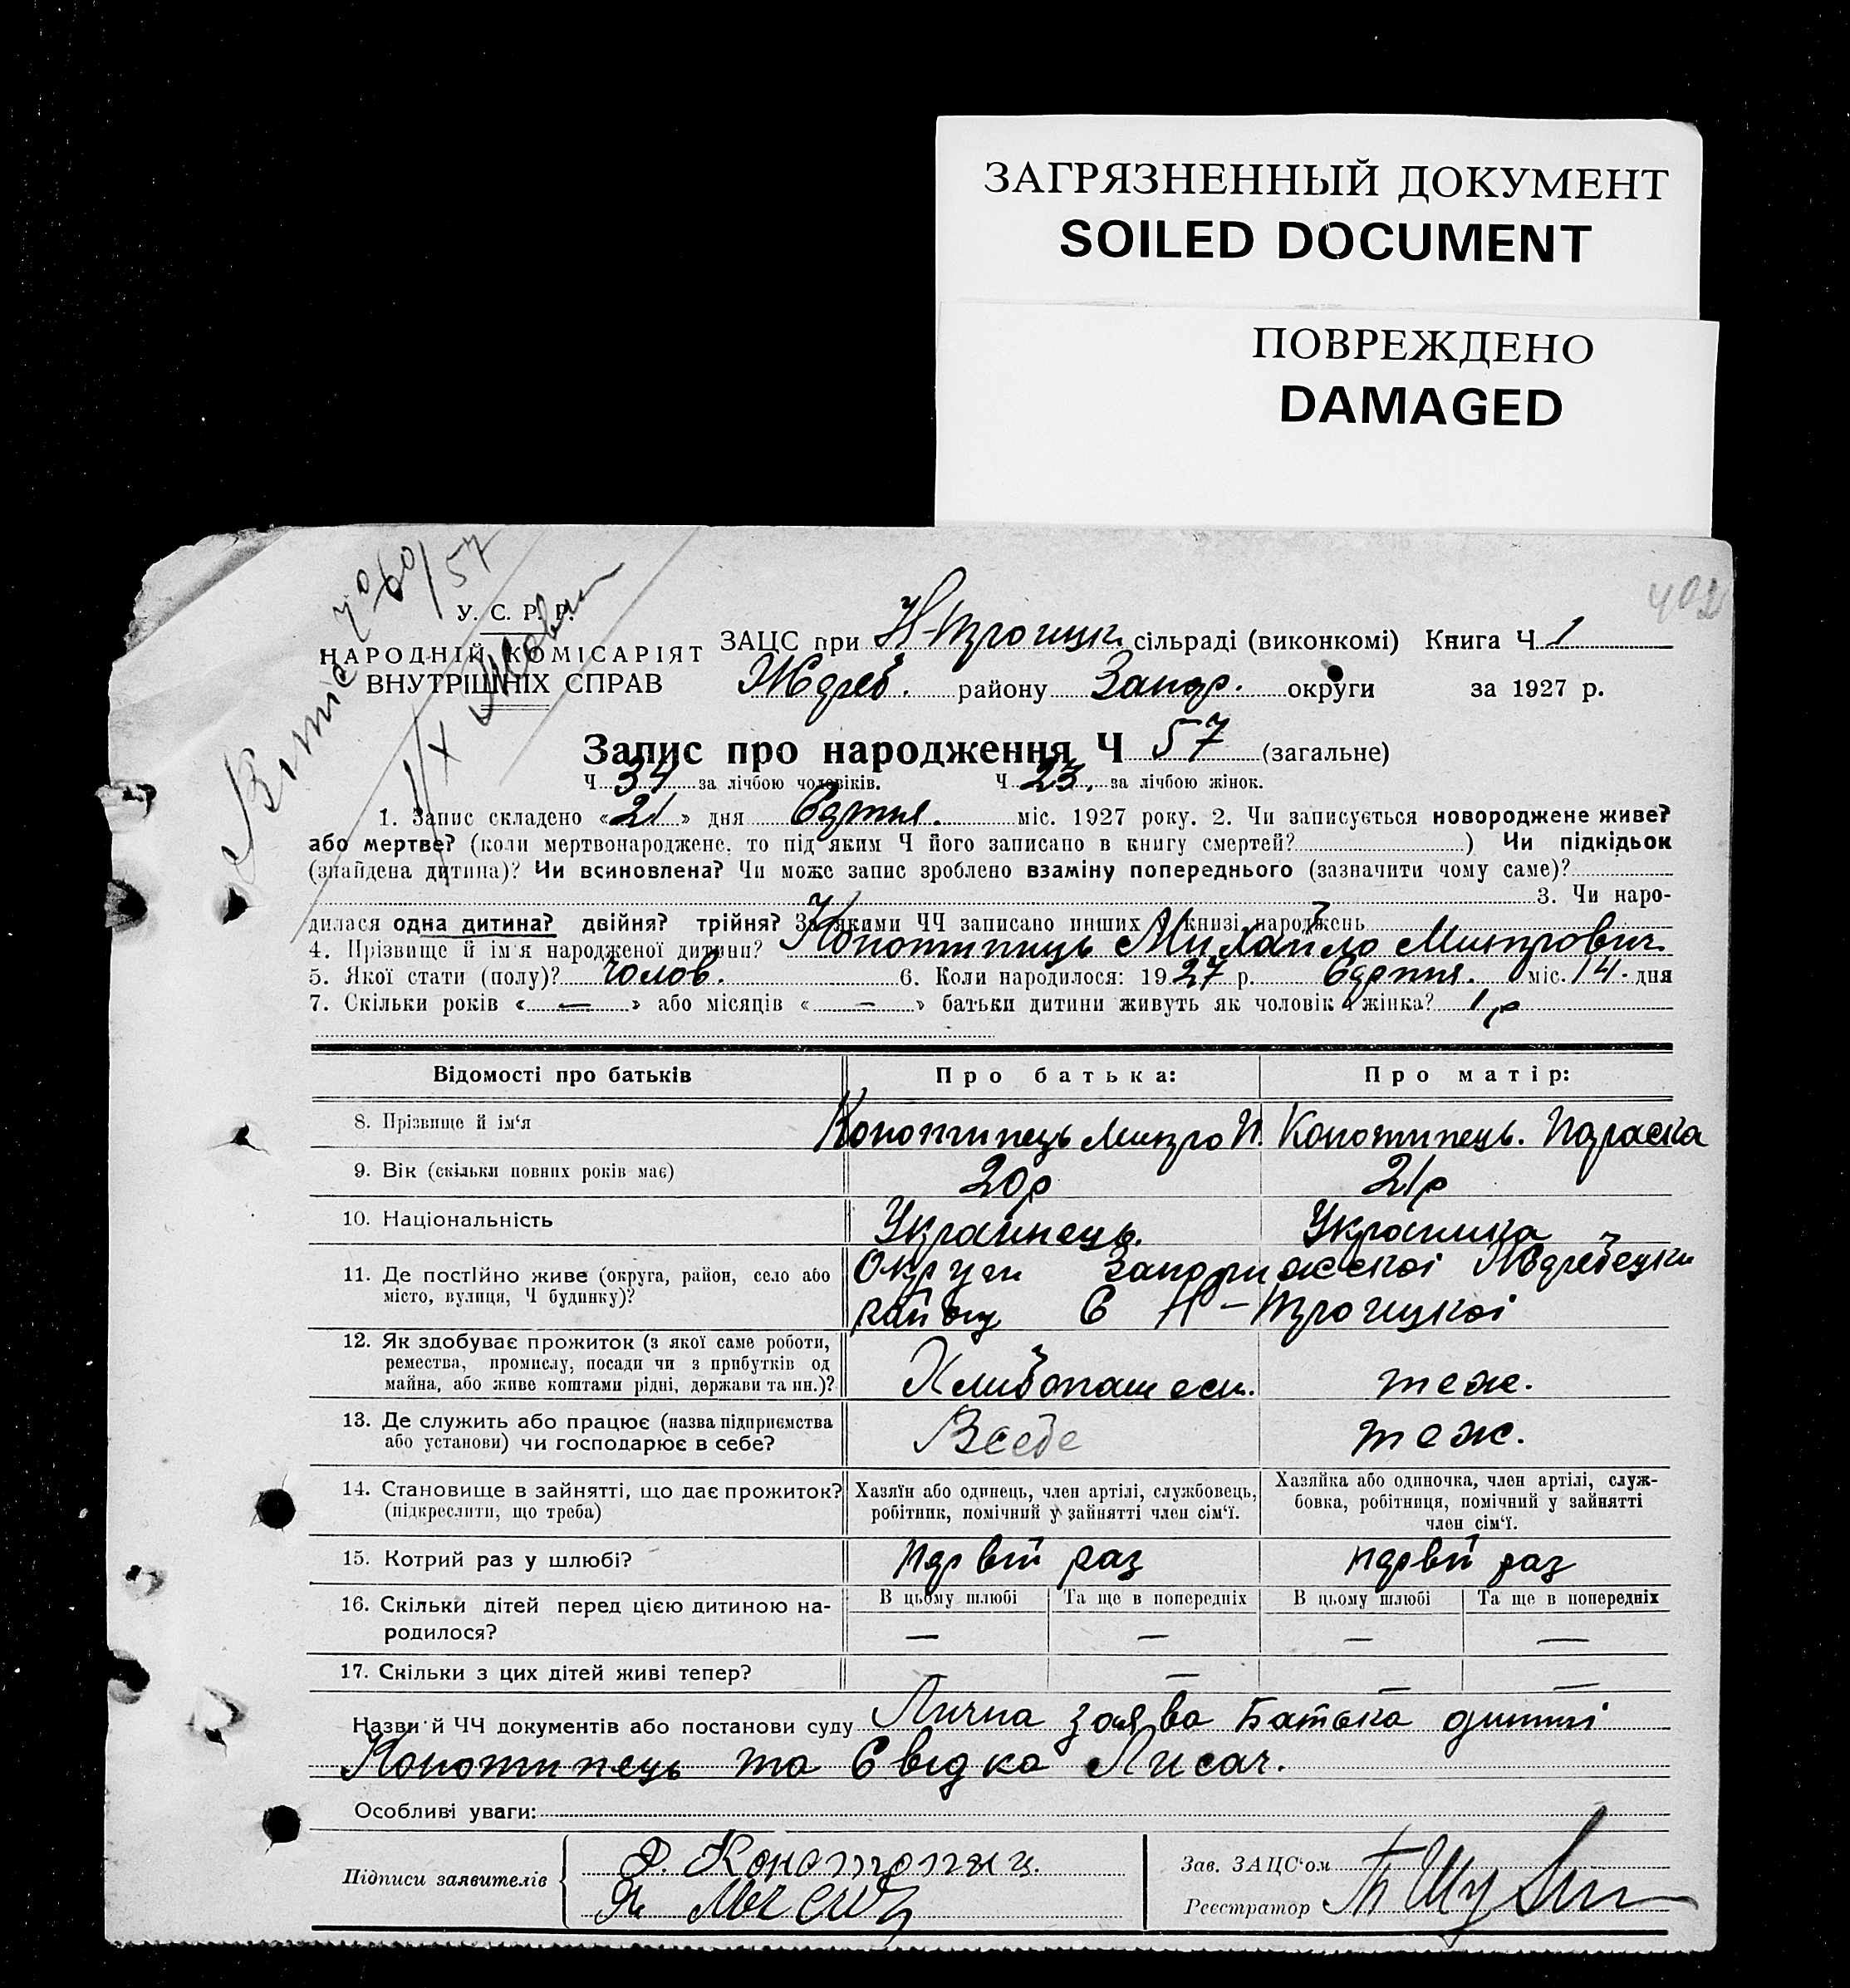 ЗАГРЯЗНЕННЫЙ ДОКУМЕНТ
SOILED DOCUMENT
ПОВРЕЖДЕНО
DAMAGED
402
У. С. Р. Р.
НАРОДНІЙ КОМІСАРІЯТ
ВНУТРІШНІХ СПРАВ
ЗАЦС при Н-Троицк сільраді (виконкомі) Книга Ч 1
Жереб. району Запор. округи за 1927 р.
Запис про народження Ч 57 (загальне)
Ч 34 за лічбою чоловіків. Ч 23. за лічбою жінок.
1. Запис складено «21» дня Сэртня. міс. 1927 року. 2. Чи записується новороджене живе?
або мертве? (коли мертвонароджене, то під яким Ч його записано в книгу смертей? ) Чи підкідьок
(знайдена дитина)? Чи всиновлена? Чи може запис зроблено взаміну попереднього (зазначити чому саме)?
3. Чи наро-
дилася одна дитина? двійня? трійня? За якими ЧЧ записано инших у книзі народжень
4. Прізвище й ім'я народженої дитини? Конотипець Михайло Митрович
5. Якої стати (полу)? чолов. 6. Коли народилося: 1927 р. міс. 14 - дня
7. Скільки років « — » або місяців « — » батьки дитини живуть як чоловік і жінка? 1 р
Відомості про батьків Про батька: Про матір:
8. Прізвище й ім'я Конотипець Митро И. Конотипець. Параска
9. Вік (скільки повних років має) 20р 21р
10. Національність Украинець. Украинка
11. Де постійно живе (округа, район, село або Округи Запорижскоі Жеребецки
місто, вулиця, Ч будинку)? району С Н-Троицкоі
12. Як здобуває прожиток (з якої саме роботи,
ремества, промислу, посади чи з прибутків од
майна, або живе коштами рідні, держави та ин.)? теж.
13. Де служить або працює (назва підприємства
або установи) чи господарює в себе? Всебе теж.
14. Становище в зайнятті, що дає прожиток?
(підкреслити, що треба)
Хазяїн або одинець, член артілі, службовець,
робітник, помічний у зайнятті член сім'ї.
Хазяйка або одиночка, член артілі, служ-
бовка, робітниця, помічний у зайнятті
член сім'ї.
15. Котрий раз у шлюбі? первій раз первій раз
16. Скільки дітей перед цією дитиною на-
родилося?
В цьому шлюбі Та ще в попередніх В цьому шлюбі Та ще в попередніх
— — — —
17. Скільки з цих дітей живі тепер? — — —
Назви й ЧЧ документів або постанови суду Лична заява Батька дитині
Конотипець та Свідка Лисач.
Особливі уваги:
Підписи заявителів
Зав. ЗАЦС'ом
Реєстратор